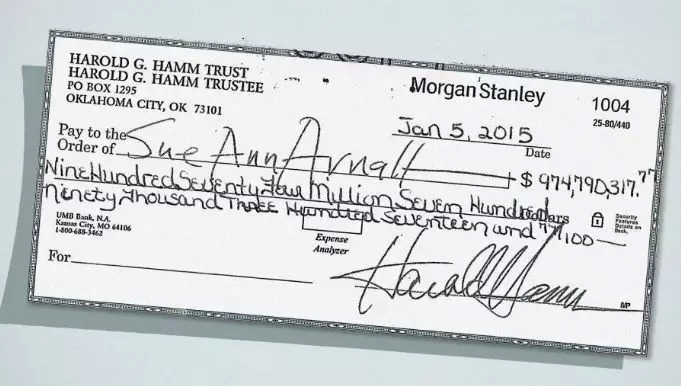 HAROLD G. HAMM TRUST
HAROLD G. HAMM TRUSTEE
PO BOX 1295
OKLAHOMA CITY, OK 73101
Morgan Stanley
1004
25-80/440
Jan 5, 2015
Date
Pay to the
Order of Sue Ann Arnall $ 974,790,317.77
Nine Hundred Seventy Four Million Seven Hundred Dollars
Ninety Thousand Three Hundred Seventeen and 77/100
Security
Features
Details on
Back.
UMB Bank, N.A.
Kansas City, MO 64106
1-800-688-3462
Expense
Analyzer
For
Harold Hamm
MP